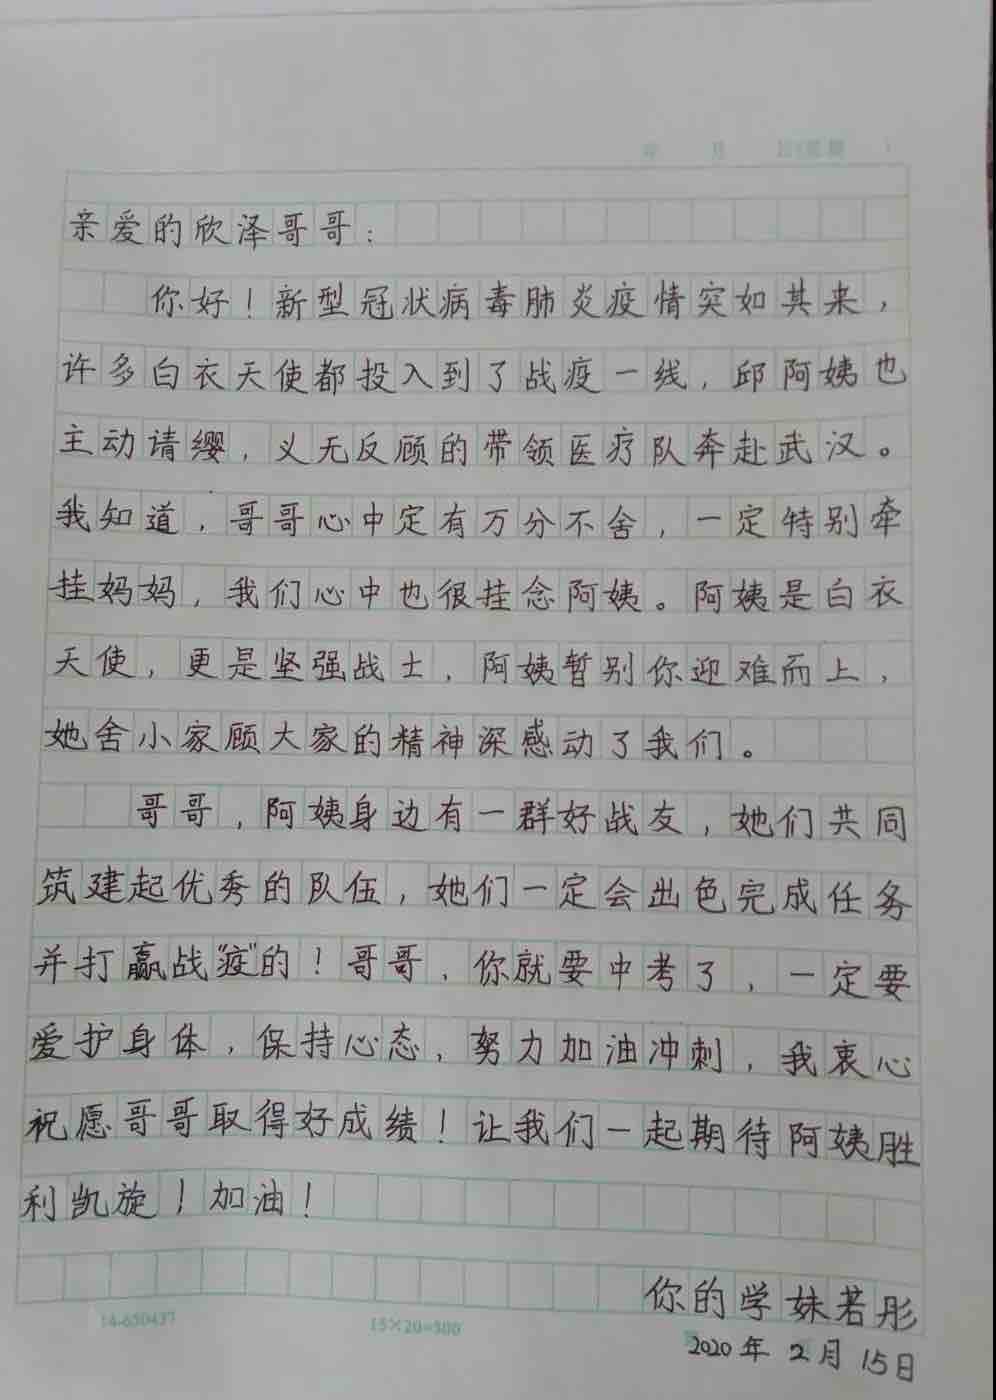 亲爱的欣泽哥哥：
你好！新型冠状病毒肺炎疫情突如其来，
许多白衣天使都投入到了战疫一线，邱阿姨也
主动请缨，义无反顾的带领医疗队奔赴武汉。
我知道，哥哥心中定有万分不舍，一定特别牵
挂妈妈，我们心中也很挂念阿姨。阿姨是白衣
天使，更是坚强战士，阿姨暂别你迎难而上，
她舍小家顾大家的精神深感动了我们。
哥哥，阿姨身边有一群好战友，她们共同
筑建起优秀的队伍，她们一定会出色完成任务
并打赢战“疫”的！哥哥，你就要中考了，一定要
爱护身体，保持心态，努力加油冲刺，我衷心
祝愿哥哥取得好成绩！让我们一起期待阿姨胜
利凯旋！加油！
你的学妹若彤
14-650437 15×20=300
2020年2月15日